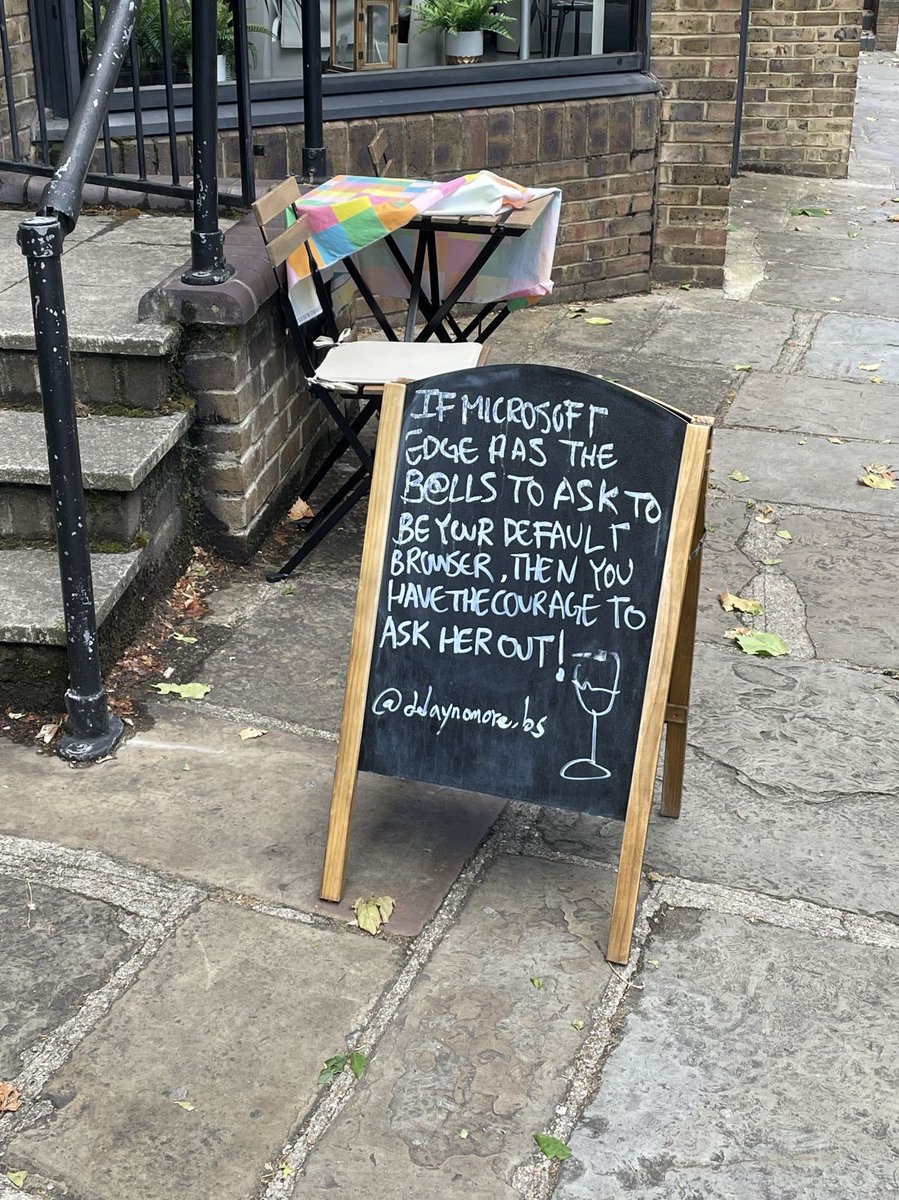 IF MICROSOFT
EDGE HAS THE
B@LLS TO ASK TO
BE YOUR DEFAULT
BROWSER, THEN YOU
HAVE THE COURAGE TO
ASK HER OUT!
@delaynomore.bs